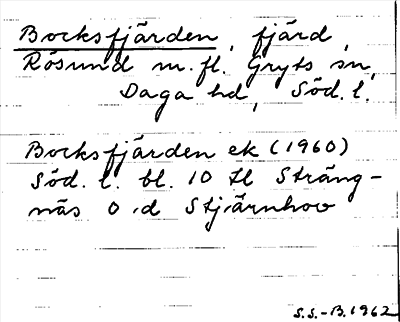 Bocksfjärden, fjärd,
Rösund m.fl. Gryts sn,
Daga hd, Söd. l.
Bocksfjärden ek (1960)
Söd. l. bl. 10 Sträng-
näs O :d Stjärnhov
S.S.-B. 1962